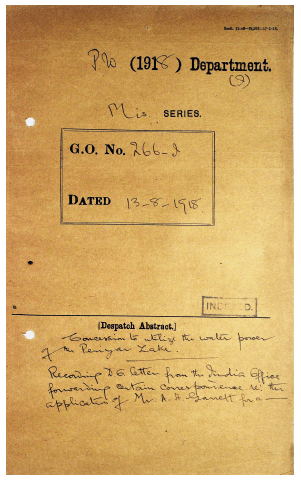 PW (1918) Department.
(I)
Mis. SERIES.
G.O. No. 266-I
DATED 13-8-1918
INDEXED.
[Despatch Abstract.]
Concession to utilize the water power
of the Periyar Lake.
Recording D.O. letter from the India Office
forwarding certain correspondence re: the
application of Mr A. H. Garrett for a